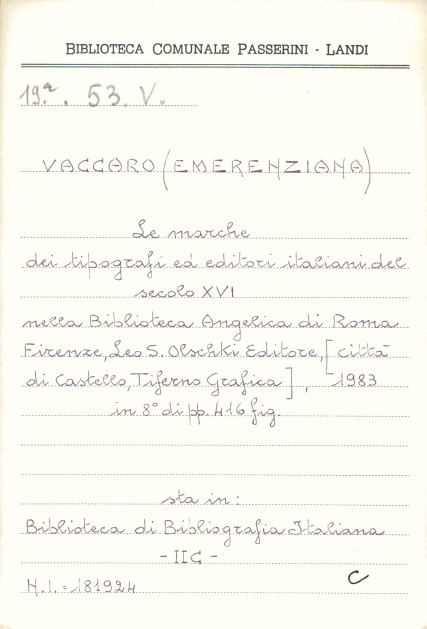 BIBLIOTECA COMUNALE PASSERINI - LANDI
19.ª. 53. V.
VACCARO (EMERENZIANA)
Le marche
dei tipografi ed editori italiani del
secolo XVI
nella Biblioteca Angelica di Roma
Firenze, Leo S. Olschki Editore, [città
di Castello, Tiferno Grafica], 1983
in 8° di pp. 416 fig.
sta in:
Biblioteca di Bibliografia Italiana
- IIC -
N.I. = 181924
C